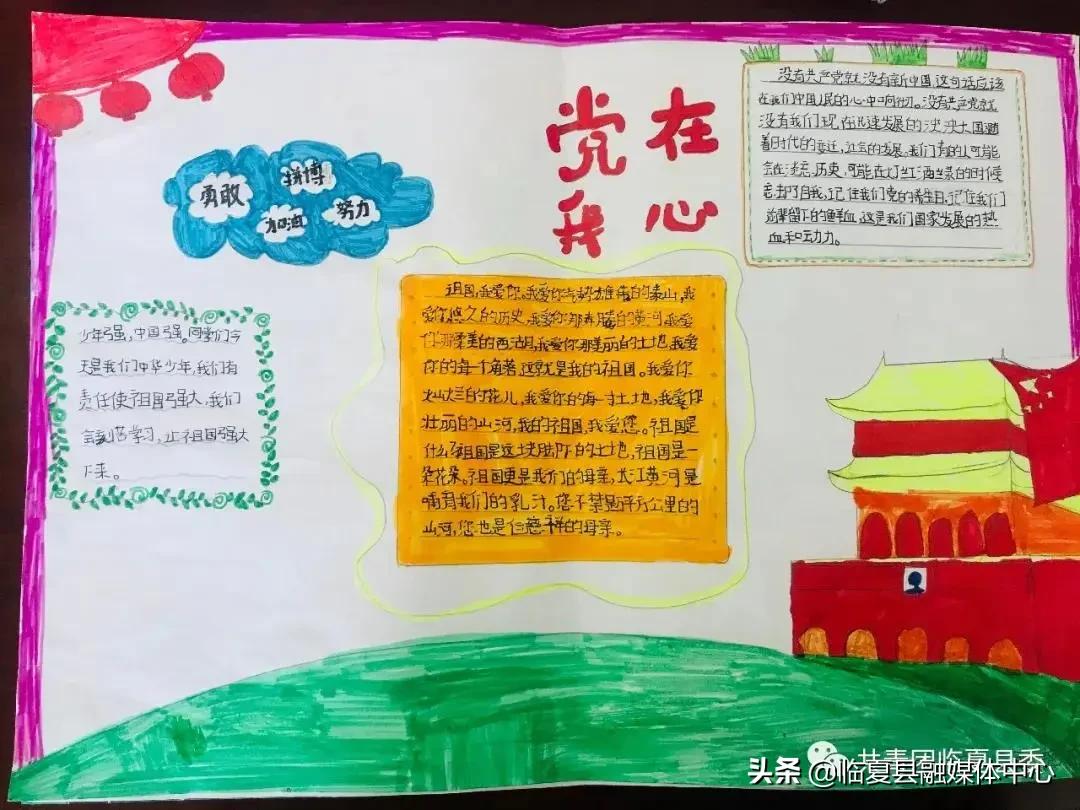 党在
我心
勇敢
拼搏
加油
努力
没有共产党就没有新中国,这句话应该
在我们中国人民的心中响彻。没有共产党就
没有我们现在迅速发展的泱泱大国随
着时代的变迁,社会的发展。我们有的人可能
会在淡忘历史,可能在灯红酒绿的时候
忘却了自我,记住我们党的生日,记住我们
前辈留下的鲜血,这是我们国家发展的热
血和动力。
祖国,我爱你。我爱你气势雄伟的泰山,我
爱你悠久的历史,我爱你那奔腾的黄河,我爱
你那柔美的西湖,我爱你那美丽的土地,我爱
你的每个角落,这就是我的祖国。我爱你
灿烂的花儿,我爱你的每一寸土地,我爱你
壮丽的山河,我的祖国,我爱您。祖国是
什么?祖国是这块脚下的土地,祖国是一
朵花朵。祖国更是我们的母亲,长江黄河是
哺育我们的乳汁。您不禁是平方公里的
山河,您也是仁慈祥的母亲。
少年强,中国强。同学们今
天是我们中华少年,我们有
责任使祖国强大,我们
会刻苦学习,让祖国强大
下来。
共青团临夏县委
头条 @临夏县融媒体中心